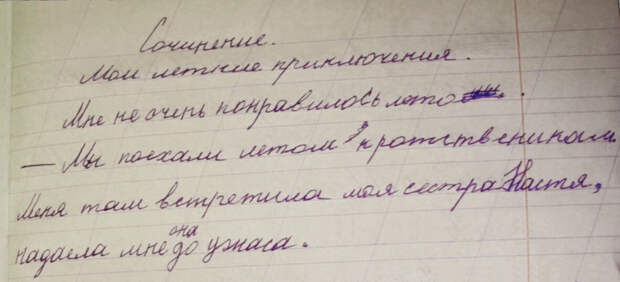 Сочинение.
Мои летние приключения.
Мне не очень понравилось лето.
— Мы поехали летом к ротствениникам
Меня там встретила моя сестра Настя,
надаела мне она до ужаса.